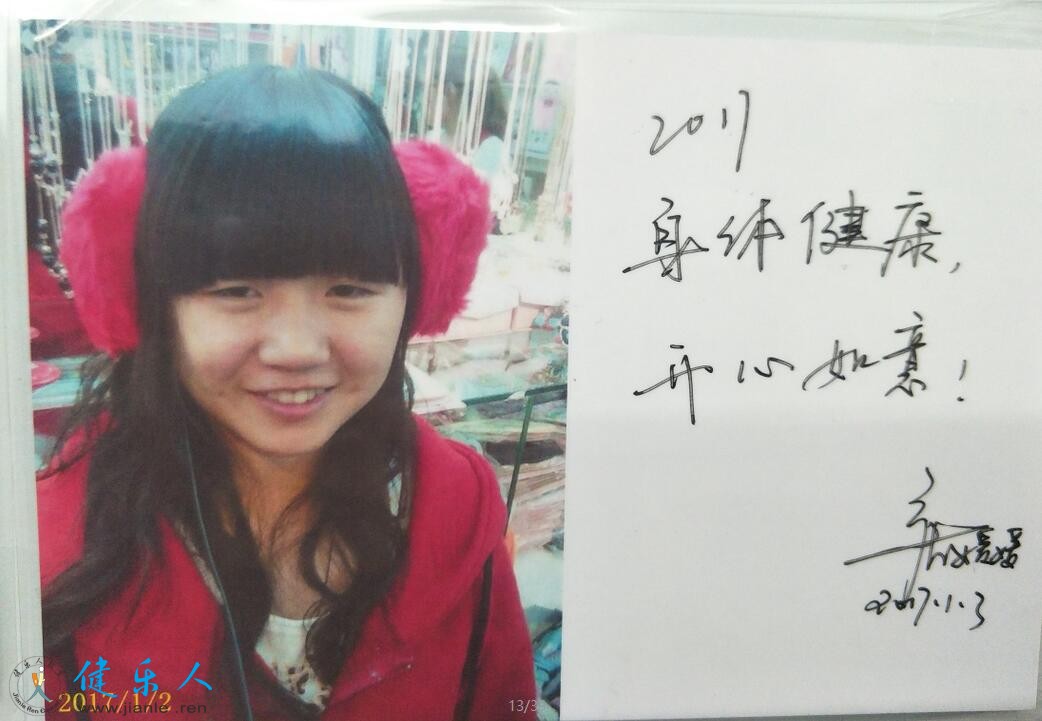 2017
身体健康，
开心如意！
2017.1.3
健乐人
2017/1/2
www.jianle.ren
13/3